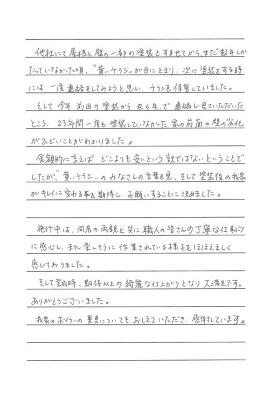 他社にて屋根と壁の一部の塗装をすませてから、まだ数年しか
たっていなかった頃、"青いチラシ"が目にとまり、次に塗装をする時
には、一度連絡をしてみようと思い、チラシを保管していました。
そして今年、前回の塗装から丸6年で連絡し見ていただいた
ところ、23年間一度も塗装していなかった家の前面の壁の劣化
がひどいことがわかりました。
金額的に言えばどこよりも安いという訳ではないということで
したが、"青いチラシ"のみなさんの言葉を見、そして塗装後の我家
がキレイに変わる事を期待し、お願いすることに決めました。
施行中は、同居の両親と共に職人の皆さんの丁寧な仕事
に感心し、また楽しそうに作業されている様子をほほえましく
感じておりました。
そして完成時、期待以上の綺麗な仕上がりとなり大満足です。
ありがとうございました。
我家のボイラーの異臭についてもおしえていただき、感謝しています。